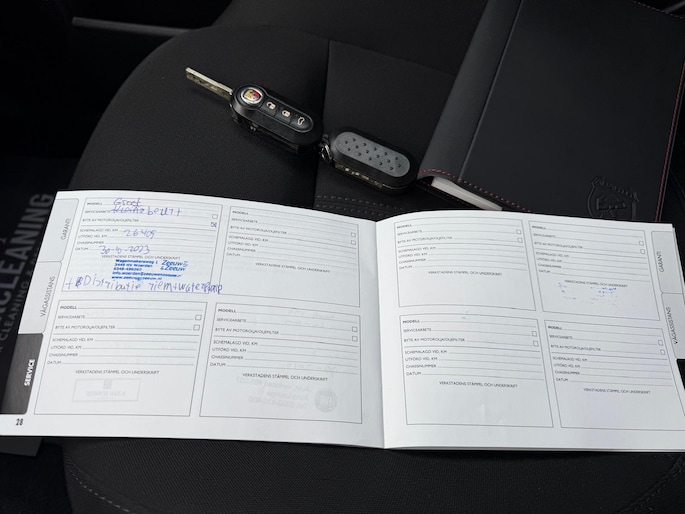 GARANTI
VÄGASSISTANS
SERVICE
28
MODELL
Groot
SERVICEARBETE
BYTE AV MOTOROLJA/OLJEFILTER
SCHEMALAGD VID, KM 26405
UTFÖRD VID, KM
CHASSINUMMER
DATUM 30-5-2023
VERKSTADENS STÄMPEL OCH UNDERSKRIFT
Wagenmakersweg
Zeeuw
& Zeeuw
+ Distributie riem+waterpomp
MODELL
SERVICEARBETE
BYTE AV MOTOROLJA/OLJEFILTER
SCHEMALAGD VID, KM
UTFÖRD VID, KM
CHASSINUMMER
DATUM
VERKSTADENS STÄMPEL OCH UNDERSKRIFT
MODELL
SERVICEARBETE
BYTE AV MOTOROLJA/OLJEFILTER
SCHEMALAGD VID, KM
UTFÖRD VID, KM
CHASSINUMMER
DATUM
VERKSTADENS STÄMPEL OCH UNDERSKRIFT
MODELL
SERVICEARBETE
BYTE AV MOTOROLJA/OLJEFILTER
SCHEMALAGD VID, KM
UTFÖRD VID, KM
CHASSINUMMER
DATUM
VERKSTADENS STÄMPEL OCH UNDERSKRIFT
MODELL
SERVICEARBETE
BYTE AV MOTOROLJA/OLJEFILTER
SCHEMALAGD VID, KM
UTFÖRD VID, KM
CHASSINUMMER
DATUM
VERKSTADENS STÄMPEL OCH UNDERSKRIFT
MODELL
SERVICEARBETE
BYTE AV MOTOROLJA/OLJEFILTER
SCHEMALAGD VID, KM
UTFÖRD VID, KM
CHASSINUMMER
DATUM
VERKSTADENS STÄMPEL OCH UNDERSKRIFT
MODELL
SERVICEARBETE
BYTE AV MOTOROLJA/OLJEFILTER
SCHEMALAGD VID, KM
UTFÖRD VID, KM
CHASSINUMMER
DATUM
VERKSTADENS STÄMPEL OCH UNDERSKRIFT
MODELL
SERVICEARBETE
BYTE AV MOTOROLJA/OLJEFILTER
SCHEMALAGD VID, KM
UTFÖRD VID, KM
CHASSINUMMER
DATUM
VERKSTADENS STÄMPEL OCH UNDERSKRIFT
GARANTI
VÄGASSISTANS
CLEANING